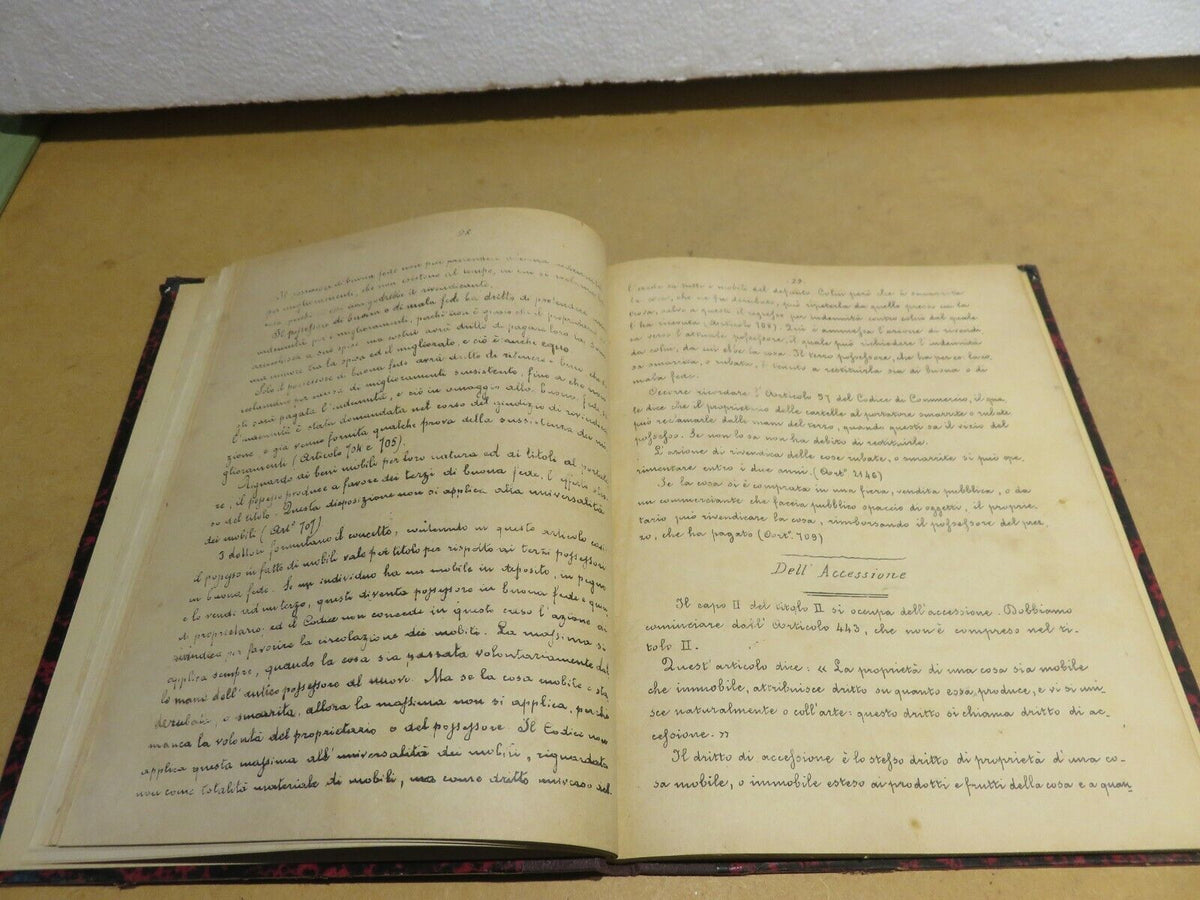 28
Il possessore di buona fede non può pretendere alcuna indennità
per miglioramenti, che non esistono al tempo, in cui si
Il possessore di buona o di mala fede ha dritto di pretendere
indennità per i miglioramenti, perchè non è giusto che il proprietario
arricchisca a sue spese; ma soltanto avrà dritto di pagare loro la som
ma minore tra la spesa ed il migliorato, e ciò è anche equo
Solo il possessore di buona fede avrà dritto di ritenere i beni che si
reclamano per causa di miglioramenti sussistenti, fino a che non
gli sarà pagata l'indennità, e ciò in omaggio alla buona fede, se
l'indennità è stata domandata nel corso del giudizio di rivendica
zione, e già venne fornita qualche prova della sussistenza dei mi
glioramenti (Articolo 704 e 705).
Riguardo ai beni mobili per loro natura ed ai titoli al portato
re, il possesso produce a favore dei terzi di buona fede, l'effetto stes
so del titolo. Questa disposizione non si applica alla universalità
dei mobili (Artº 707)
I dottori formulano il concetto, contenuto in questo articolo così:
il possesso in fatto di mobili vale per titolo per rispetto ai terzi possessori
in buona fede. Se un individuo ha un mobile in deposito, in pegno
e lo vende ad un terzo, questi diventa possessore in buona fede e quasi
di proprietario, ed il Codice non concede in questo caso l'azione di
rivendica per favorire la circolazione dei mobili. La massima si
applica sempre, quando la cosa sia passata volontariamente dal
le mani dell'antico possessore al nuovo. Ma se la cosa mobile è sta
derubata, o smarrita, allora la massima non si applica, perchè
manca la volontà del proprietario o del possessore. Il Codice non
applica questa massima all'universalità dei mobili, riguardata
non come totalità materiale di mobili, ma come dritto universo ed
29.
l'erede su tutti i mobili del defunto. Colui però che à smarrita
la cosa, che ne fu derubato, può ripeterla da quello presso cui la
trova, salvo a questi il regresso per indennità contro colui dal quale
l'ha ricevuta (Articolo 708). Quì è ammessa l'azione di rivendi
ca verso l'attuale possessore, il quale può richiedere l'indennità
da colui, da cui ebbe la cosa. Il terzo possessore, che ha per se la co
sa smarrita, o rubata, è tenuto a restituirla sia di buona o di
mala fede.
Occorre ricordare l'Articolo 57 del Codice di Commercio, il qua
le dice che il proprietario delle cartelle al portatore smarrite o rubate
può reclamarle dalle mani del terzo, quando questi sa il vizio del
possesso. Se non lo sa non ha debito di restituirle.
L'azione di rivendica delle cose rubate, o smarrite si può spe-
rimentare entro i due anni. (Artº. 2146)
Se la cosa si è comprata in una fiera, vendita pubblica, o da
un commerciante che faccia pubblico spaccio di oggetti, il proprie-
tario può rivendicare la cosa, rimborsando il possessore del prez
zo, che ha pagato (Artº. 709)
Dell'Accessione
Il capo II del titolo II si occupa dell'accessione. Dobbiamo
cominciare dall'Articolo 443, che non è compreso nel ti-
tolo II.
Quest'articolo dice: « La proprietà di una cosa sia mobile
che immobile, attribuisce dritto su quanto essa produce, e vi si uni-
sce naturalmente o coll'arte: questo dritto si chiama dritto di ac-
cessione. »
Il dritto di accessione è lo stesso dritto di proprietà d'una co-
sa mobile, o immobile esteso ai prodotti e frutti della cosa e a quan